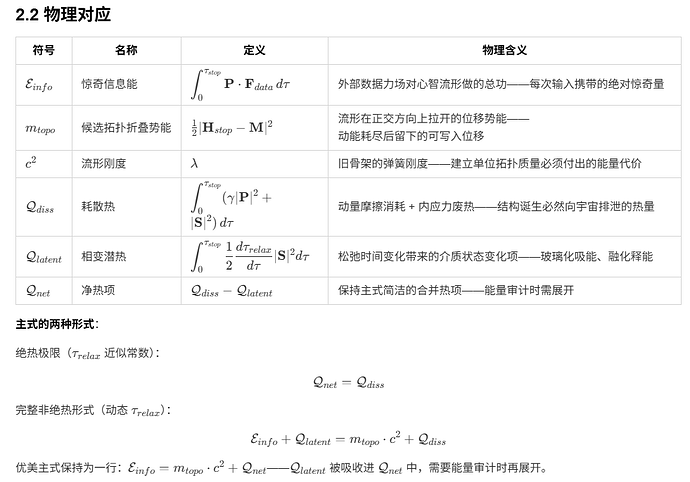 2.2 物理对应
符号 名称 定义 物理含义
𝓔_info 惊奇信息能 ∫_0^{τ_stop} P · F_data dτ 外部数据力场对心智流形做的总功——每次输入携带的绝对惊奇量
m_topo 候选拓扑折叠势能 ½|H_stop − M|² 流形在正交方向上拉开的位移势能——
动能耗尽后留下的可写入位移
c² 流形刚度 λ 旧骨架的弹簧刚度——建立单位拓扑质量必须付出的能量代价
𝒬_diss 耗散热 ∫_0^{τ_stop} (γ|P|² +
|S|²) dτ 动量摩擦消耗 + 内应力废热——结构诞生必然向宇宙排泄的热量
𝒬_latent 相变潜热 ∫_0^{τ_stop} 1/2 dτ_relax/dτ |S|² dτ 松弛时间变化带来的介质状态变化项——玻璃化吸能、融化释能
𝒬_net 净热项 𝒬_diss − 𝒬_latent 保持主式简洁的合并热项——能量审计时需展开
主式的两种形式：
绝热极限（τ_relax 近似常数）：
𝒬_net = 𝒬_diss
完整非绝热形式（动态 τ_relax）：
𝓔_info + 𝒬_latent = m_topo · c² + 𝒬_diss
优美主式保持为一行：𝓔_info = m_topo · c² + 𝒬_net——𝒬_latent 被吸收进 𝒬_net 中，需要能量审计时再展开。